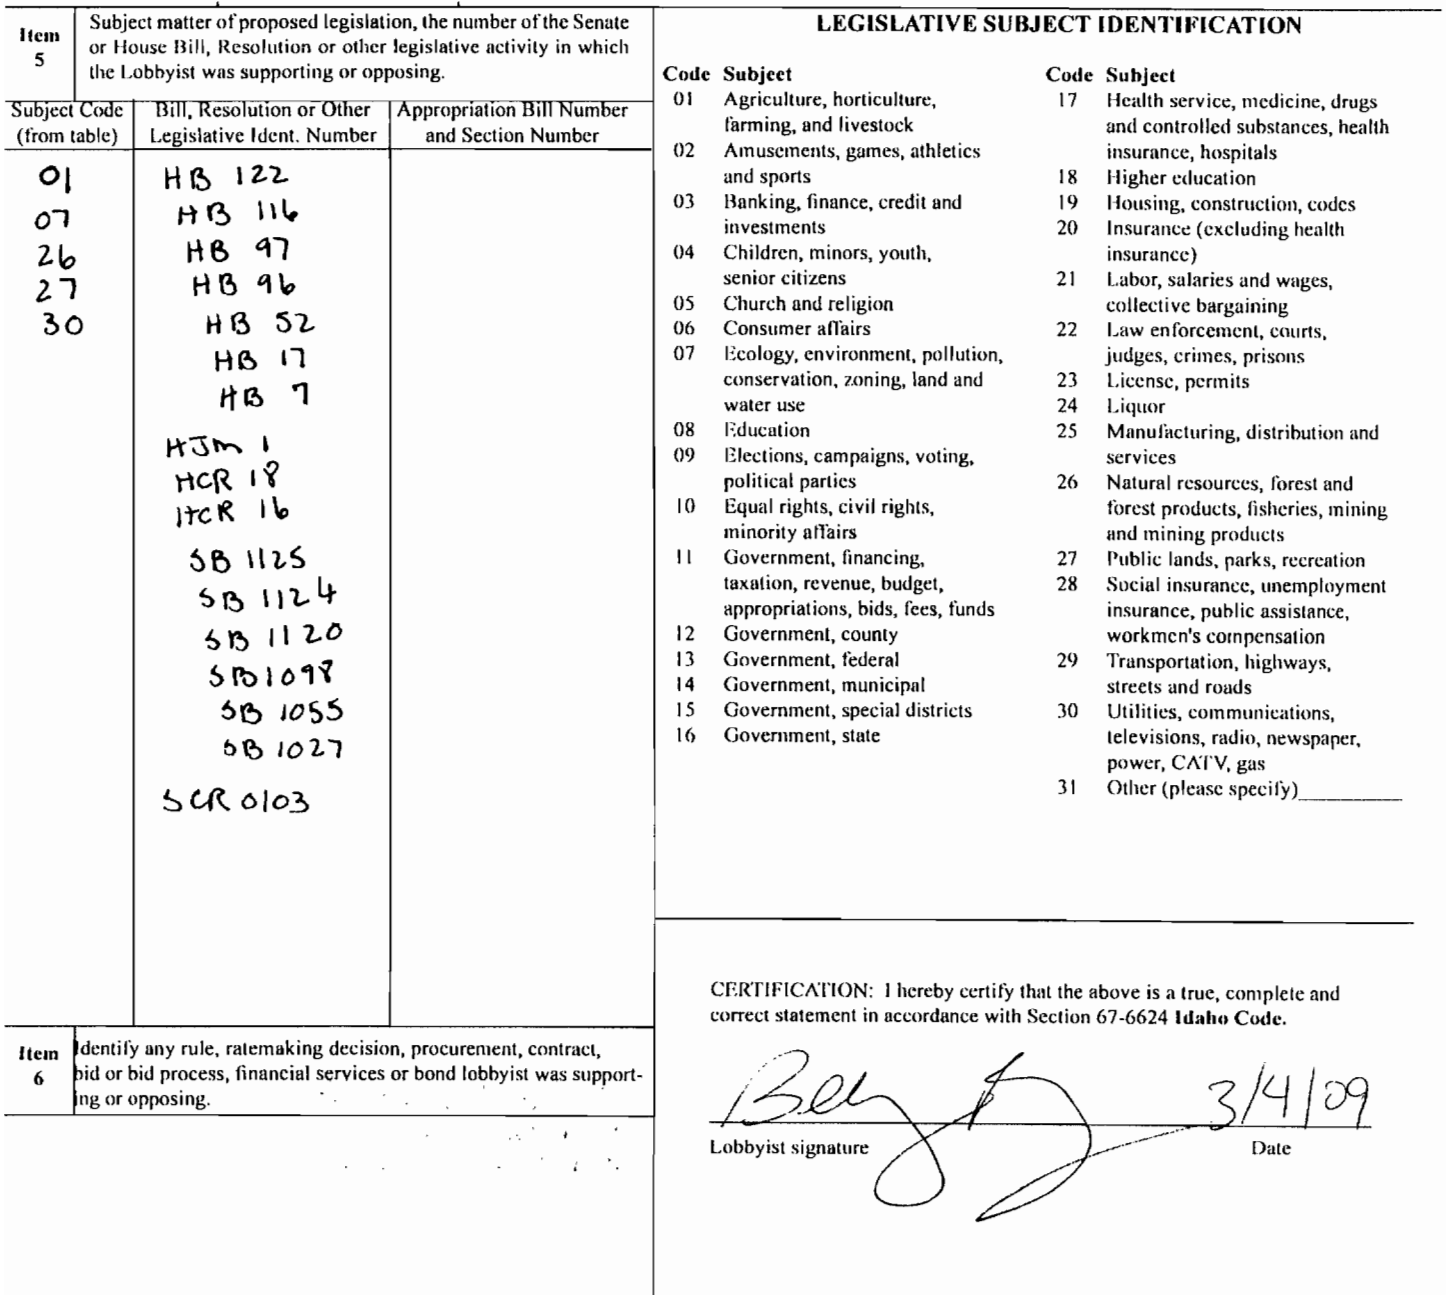 Item 5
Subject matter of proposed legislation, the number of the Senate
or House Bill, Resolution or other legislative activity in which
the Lobbyist was supporting or opposing.
Subject Code
(from table)
Bill, Resolution or Other
Legislative Ident. Number
Appropriation Bill Number
and Section Number
01 HB 122
07 HB 116
26 HB 97
27 HB 96
30 HB 52
HB 17
HB 7
HJM 1
HCR 18
HCR 16
SB 1125
SB 1124
SB 1120
SB1098
SB 1055
SB 1027
SCR 0103
Item 6
Identify any rule, ratemaking decision, procurement, contract,
bid or bid process, financial services or bond lobbyist was support-
ing or opposing.
LEGISLATIVE SUBJECT IDENTIFICATION
Code Subject
01 Agriculture, horticulture,
farming, and livestock
02 Amusements, games, athletics
and sports
03 Banking, finance, credit and
investments
04 Children, minors, youth,
senior citizens
05 Church and religion
06 Consumer affairs
07 Ecology, environment, pollution,
conservation, zoning, land and
water use
08 Education
09 Elections, campaigns, voting,
political parties
10 Equal rights, civil rights,
minority affairs
11 Government, financing,
taxation, revenue, budget,
appropriations, bids, fees, funds
12 Government, county
13 Government, federal
14 Government, municipal
15 Government, special districts
16 Government, state
Code Subject
17 Health service, medicine, drugs
and controlled substances, health
insurance, hospitals
18 Higher education
19 Housing, construction, codes
20 Insurance (excluding health
insurance)
21 Labor, salaries and wages,
collective bargaining
22 Law enforcement, courts,
judges, crimes, prisons
23 License, permits
24 Liquor
25 Manufacturing, distribution and
services
26 Natural resources, forest and
forest products, fisheries, mining
and mining products
27 Public lands, parks, recreation
28 Social insurance, unemployment
insurance, public assistance,
workmen's compensation
29 Transportation, highways,
streets and roads
30 Utilities, communications,
televisions, radio, newspaper,
power, CATV, gas
31 Other (please specify)__________
CERTIFICATION: I hereby certify that the above is a true, complete and
correct statement in accordance with Section 67-6624 Idaho Code.
3/4/09
Lobbyist signature
Date